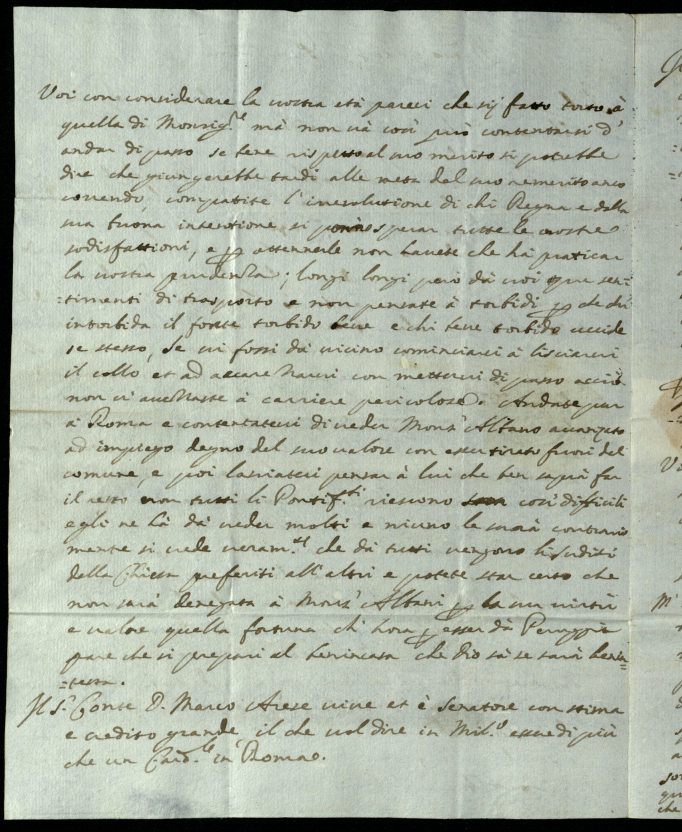 Voi con considerare la vostra età pareci che sij fatto torto à
quella di Monsig.re mà non và così può contentarsi d'
andar di passo se bene rispetto al suo merito si potrebbe
dire che giungerebbe tardi alle meta del suo merito anco
correndo, compatite l'irresolutione di chi Regna e dalla
sua buona intentione si può sperar tutte le vostre
sodisfattioni, e p ottenerle non havete che hà praticar
la vostra prudenza; longi longi però dà voi que sen-
=timenti di trasporto e non pensate à torbidi p che chi
intorbida il fonte torbido beve e chi beve torbido uccide
se stesso, Se vi fossi dà vicino cominciarei à lisciarvi
il collo et ad con mettervi di passo acciò
non v'avezzaste à cariere pericolose. Andate pur
à Roma e contentatevi di veder Mons.r Albano avanzato
ad impiego degno del suo valore con esser tirato fuori del
comune, e poi lasciatevi pensar à lui che ben saprà far
il resto non tutti li Pontif.ti riescono così difficili
egli ne hà dà veder molti e niuno le sarà contrario
mente si vede veram.te che dà tutti vengono li sudditi
della Chiesa preferiti all'altri e potete star certo che
non sarà denegata à Mons.r Albani p la sua virtù
e valore quella fortuna ch'hora p esser dà
pare che si prepari al che Dio sà se sarà
Il S.r Conte D. Marco Arese vive et è Senatore con stima
e credito grande, il che vol dire in Mil.o esser di più
che un Card.le in Roma.